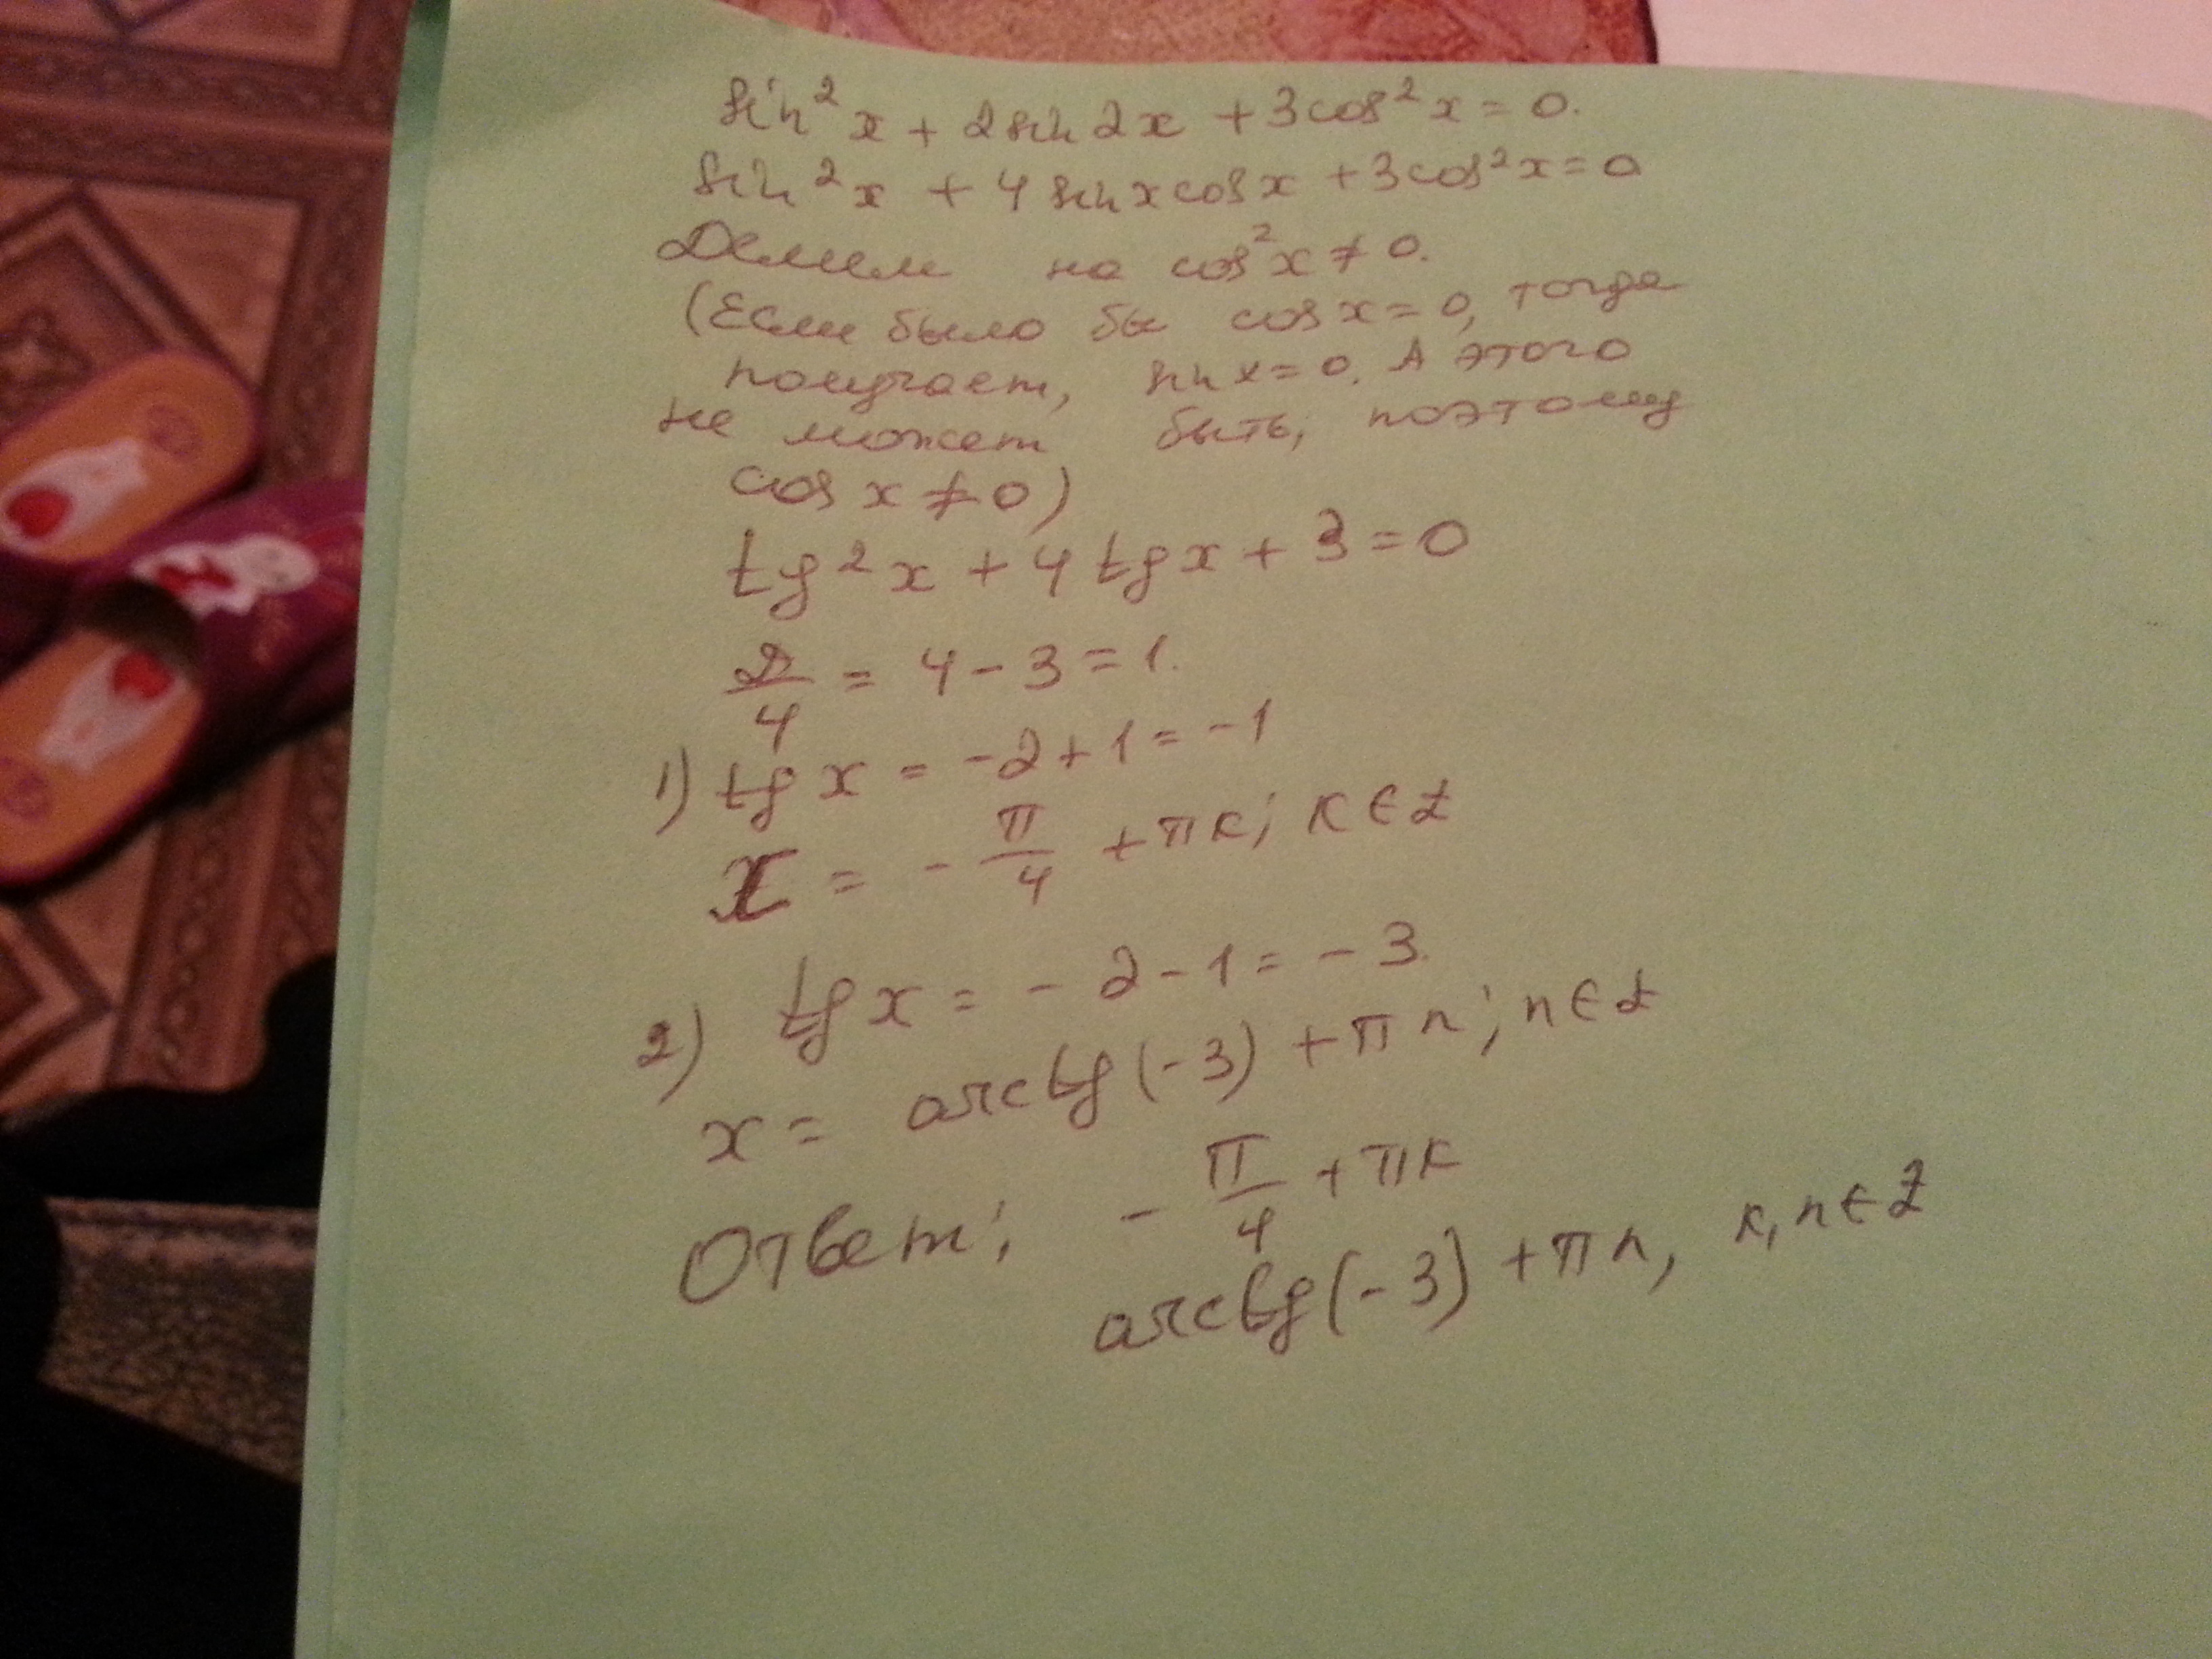 sin²x + 2sin2x + 3cos²x = 0.
sin²x + 4sinxcosx + 3cos²x = 0
Делим на cos²x ≠ 0.
(Если было бы cosx = 0, тогда
получаем, sinx = 0. А этого
не может быть, поэтому
cosx ≠ 0)
tg²x + 4tgx + 3 = 0
D/4 = 4 - 3 = 1.
1) tgx = -2 + 1 = -1
x = -π/4 + πk; k ∈ Z
2) tgx = -2 - 1 = -3.
x = arctg(-3) + πn; n ∈ Z
Ответ: -π/4 + πk
arctg(-3) + πn, k, n ∈ Z